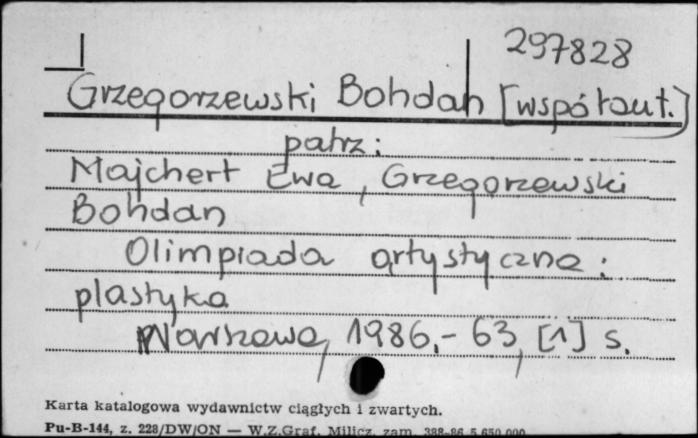 297828
Grzegorzewski Bohdan [współaut.]
patrz:
Majchert Ewa, Grzegorzewski
Bohdan
Olimpiada artystyczna:
plastyka
Warszawa, 1986.- 63, [1] s.
Karta katalogowa wydawnictw ciągłych i zwartych.
Pu-B-144, z. 228/DW/ON — W.Z.Graf. Milicz, zam. 388-86 5.650.000